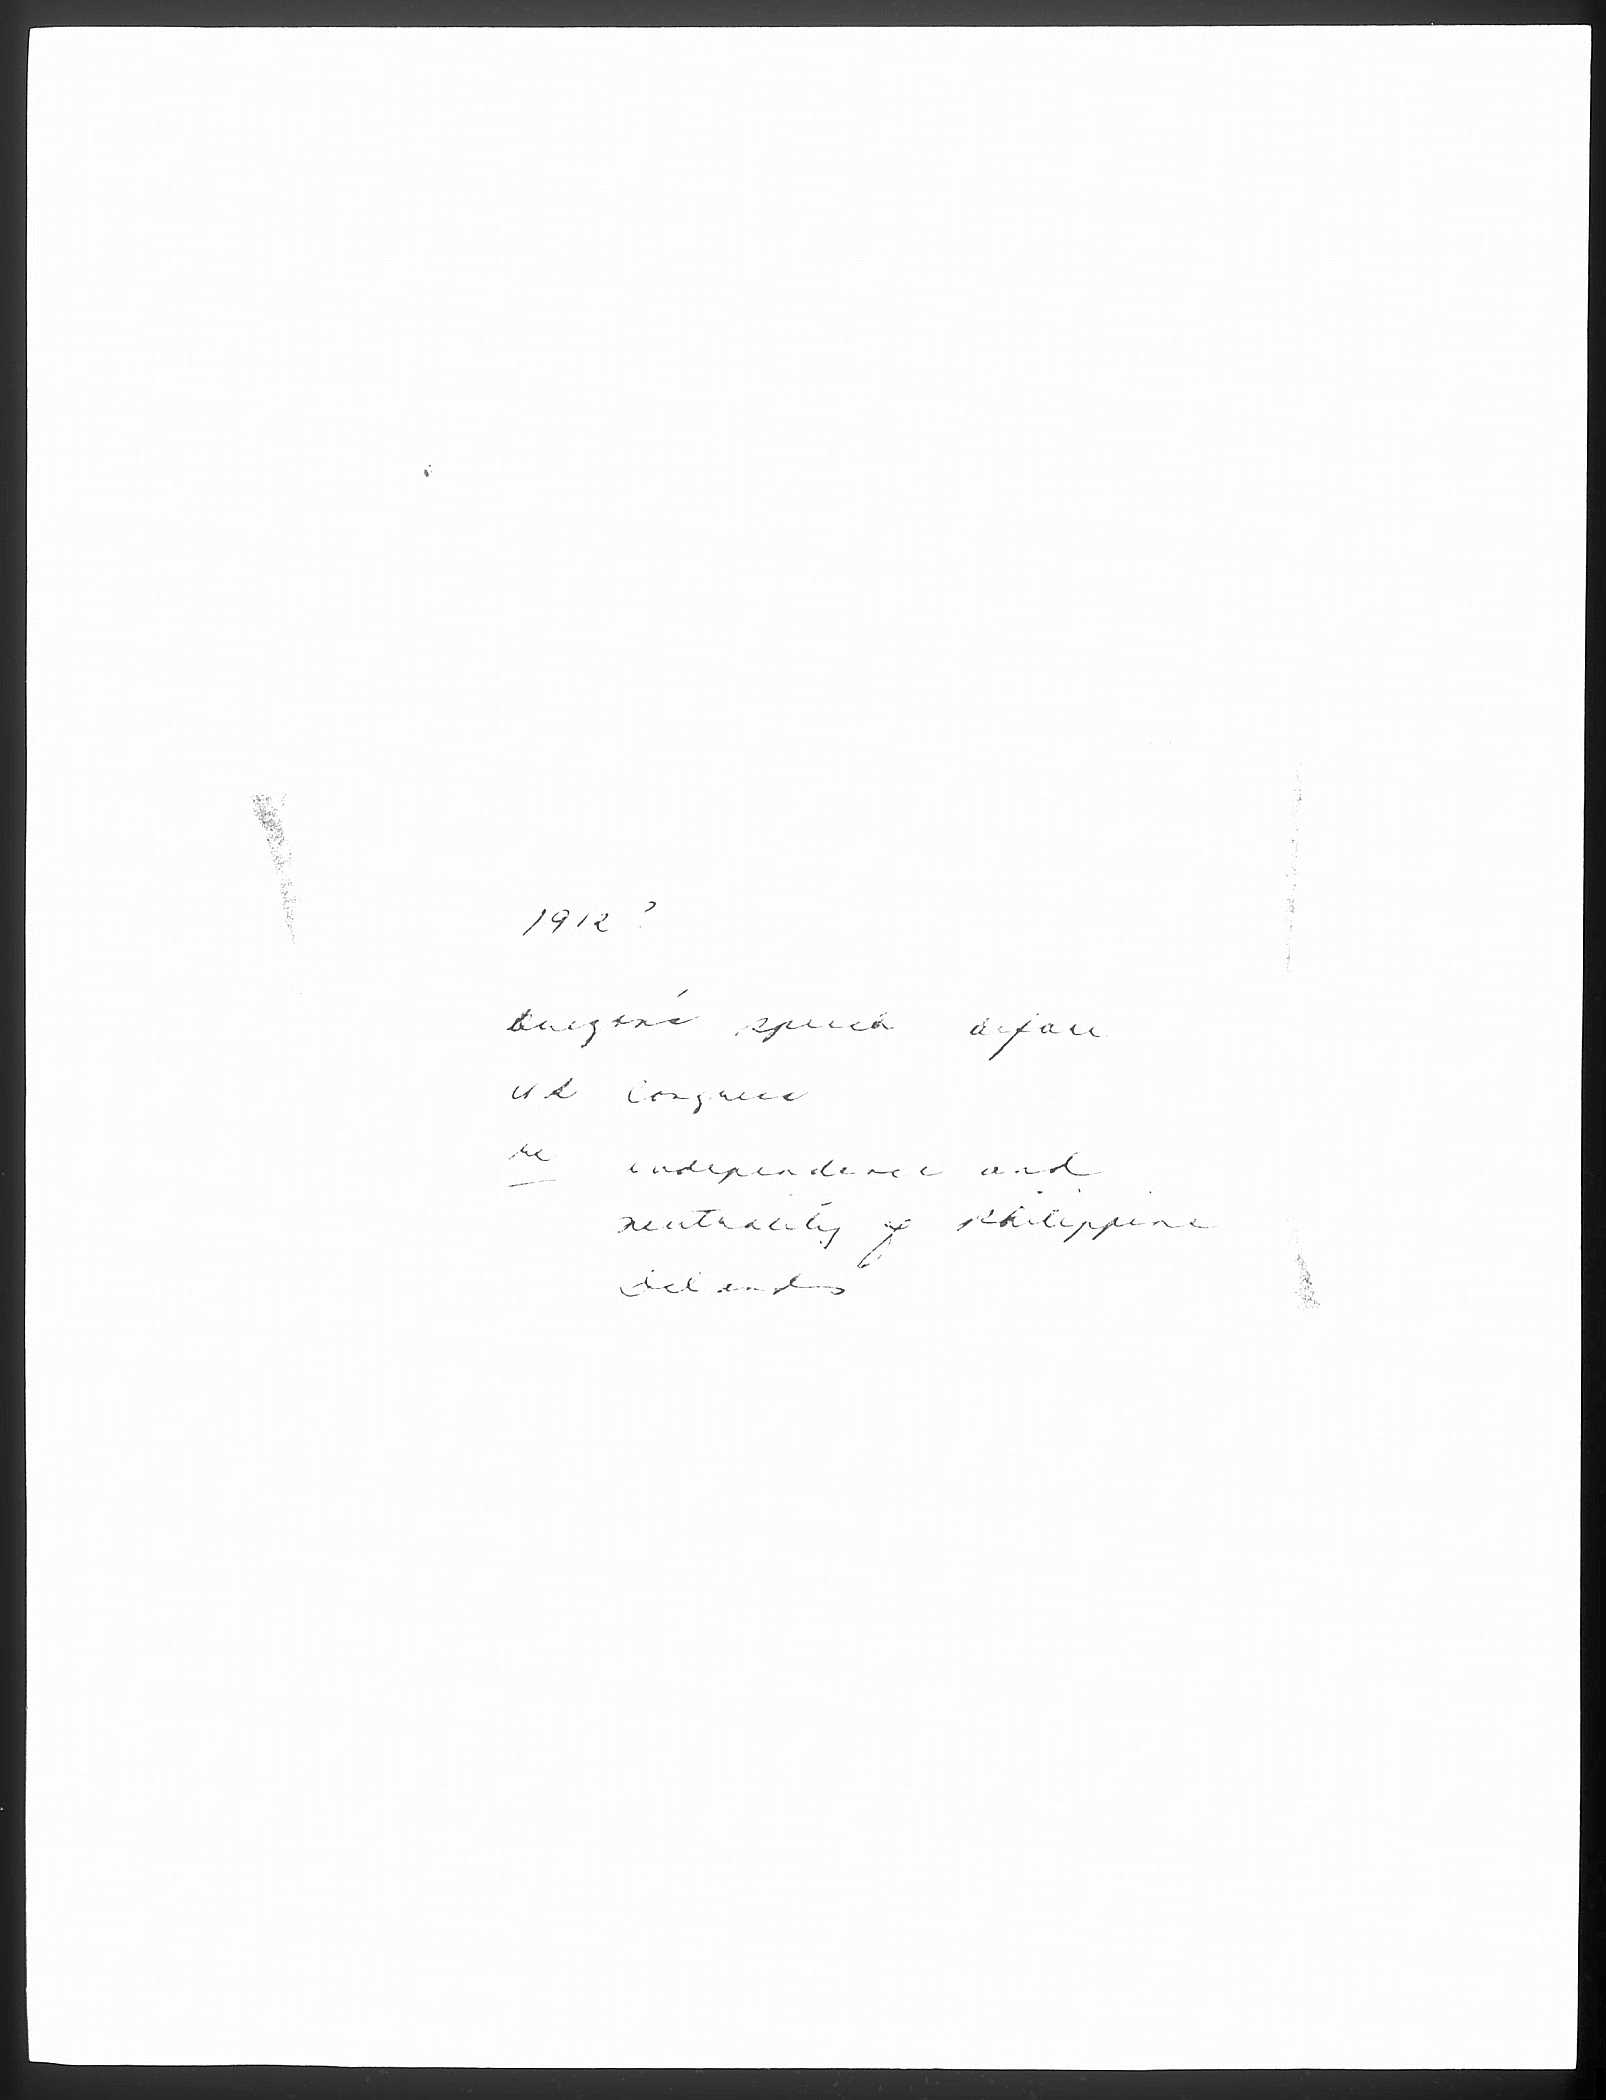 1912?
Quezon's speech before
US Congress
re independence and
neutrality of Philippine
Islands